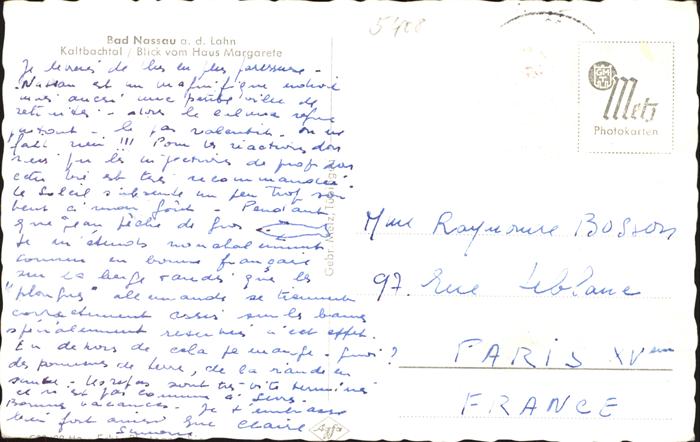 5408
Bad Nassau a. d. Lahn
Kaltbachtal / Blick vom Haus Margarete
Je deviens de plus en plus paresseuse -
Nassau est un magnifique endroit
mais aussi une petite ville de
retraités - alors le calme règne
partout - le pas valentit. on ne
fait rien !!! Pour les réactions dans
cette vie est très recommandée.
Le soleil s'absente un peu trop sou
vent à mon goût. Pendant
que Jean pêche de gros
Je m'étends nonchalamment
comme en bonne française
sur la berge tandis que les
"allemande se tiennent
correctement assis sur les bancs
spécialement réservés à cet effet.
En dehors de cela je mange - quoi ?
des pommes de terre, de la viande en
sauce - les repas sont très vite terminés
ce n'est pas comme à
Bonnes vacances. Je t'embrasse
bien fort ainsi que Claire
Simone
Gebr. Metz, Tübingen
METZ
Metz
Photokarten
Mme Raymonde Bosson
97. rue Leblanc
PARIS XVem
FRANCE
Agfa